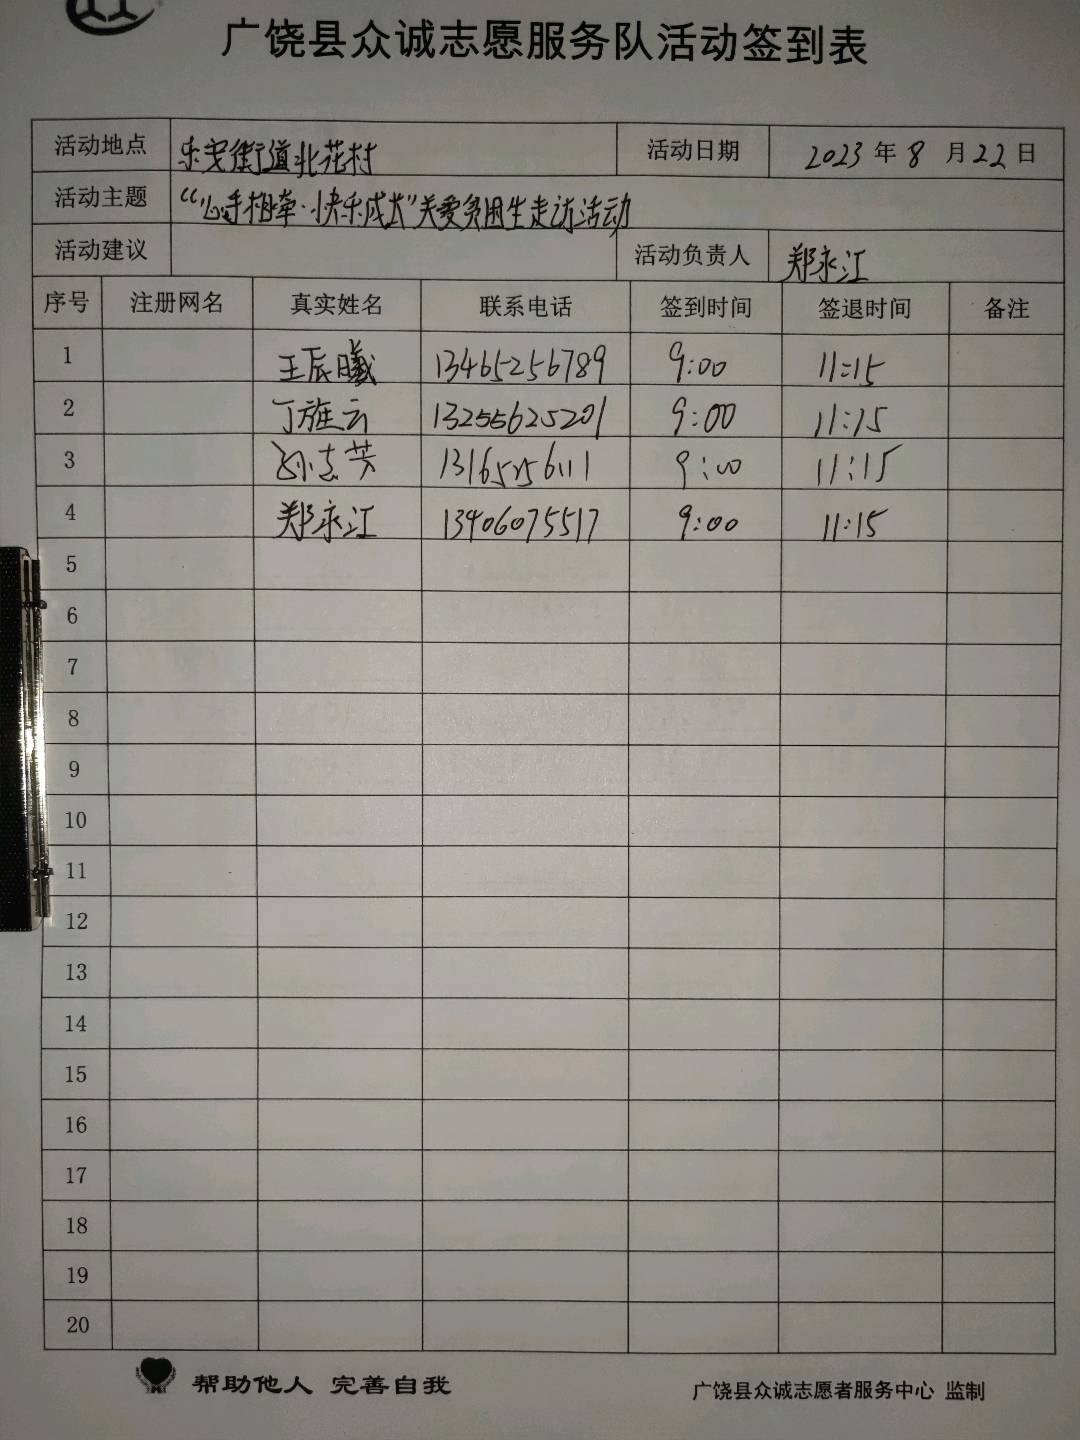 广饶县众诚志愿服务队活动签到表
活动地点 乐安街道北花村 活动日期 2023 年 8 月 22 日
活动主题 “心手相牵·快乐成长”关爱贫困生走访活动
活动建议 活动负责人 郑永江
序号 注册网名 真实姓名 联系电话 签到时间 签退时间 备注
1 王辰曦 13465256789 9:00 11:15
2 丁旌云 13255625201 9:00 11:15
3 孙志芳 13165256111 9:00 11:15
4 郑永江 13406075517 9:00 11:15
5
6
7
8
9
10
11
12
13
14
15
16
17
18
19
20
帮助他人 完善自我 广饶县众诚志愿者服务中心 监制